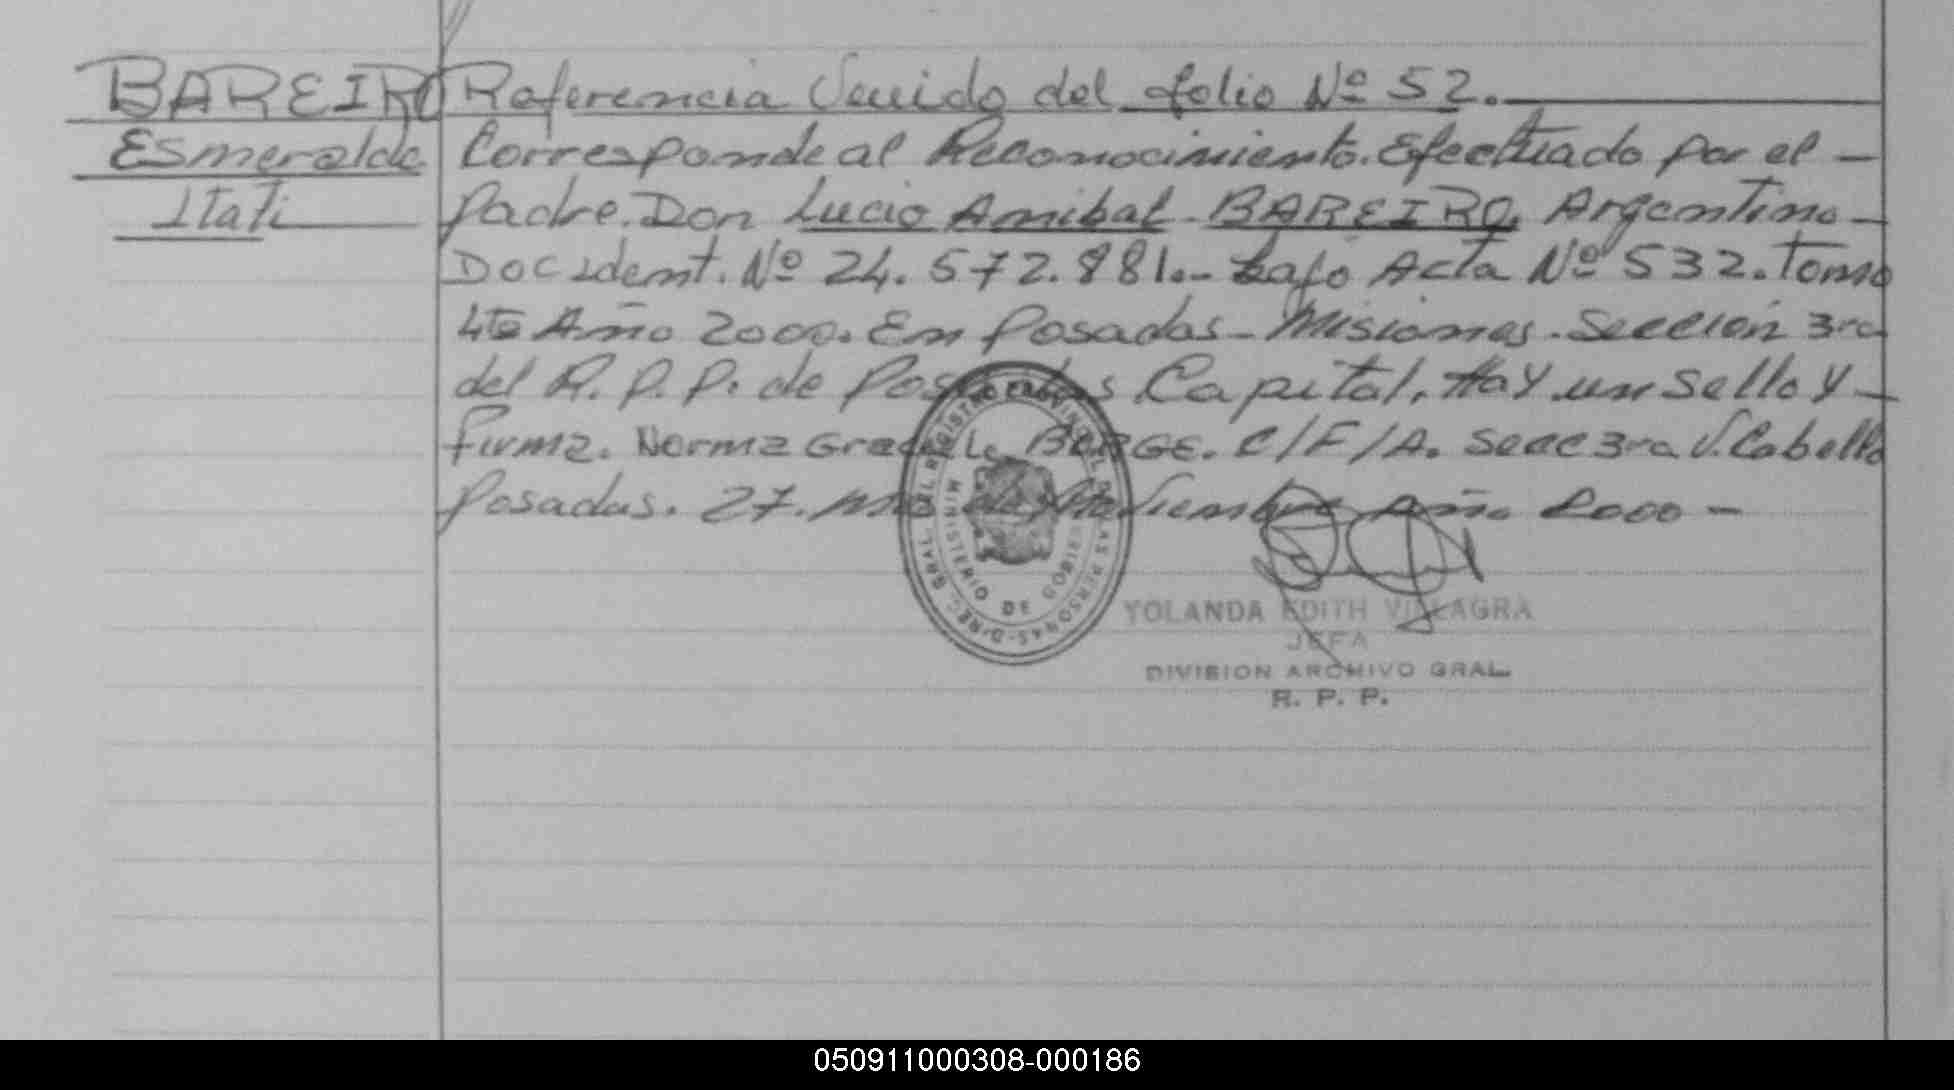 BAREIRO
Esmeralda
Itati
Referencia Venido del folio Nº 52.
Corresponde al Reconocimiento. Efectuado por el -
Padre. Don Lucio Anibal - BAREIRO, Argentino -
Doc ident. Nº 24.572.881.- bajo Acta Nº 532. Tomo
4to Año 2000. En Posadas - Misiones - Sección 3ra
del R. P. P. de Posadas Capital, Hay un Sello y -
firma. Norma Graciela BORGE. C/F/A. Secc 3ra V. Cabello
Posadas. 27. Noviembre Año 2000 -
DIREC. GRAL. DEL REGISTRO PROVINCIAL DE LAS PERSONAS
MINISTERIO DE GOBIERNO
YOLANDA EDITH VILLAGRA
JEFA
DIVISION ARCHIVO GRAL.
R. P. P.
050911000308-000186